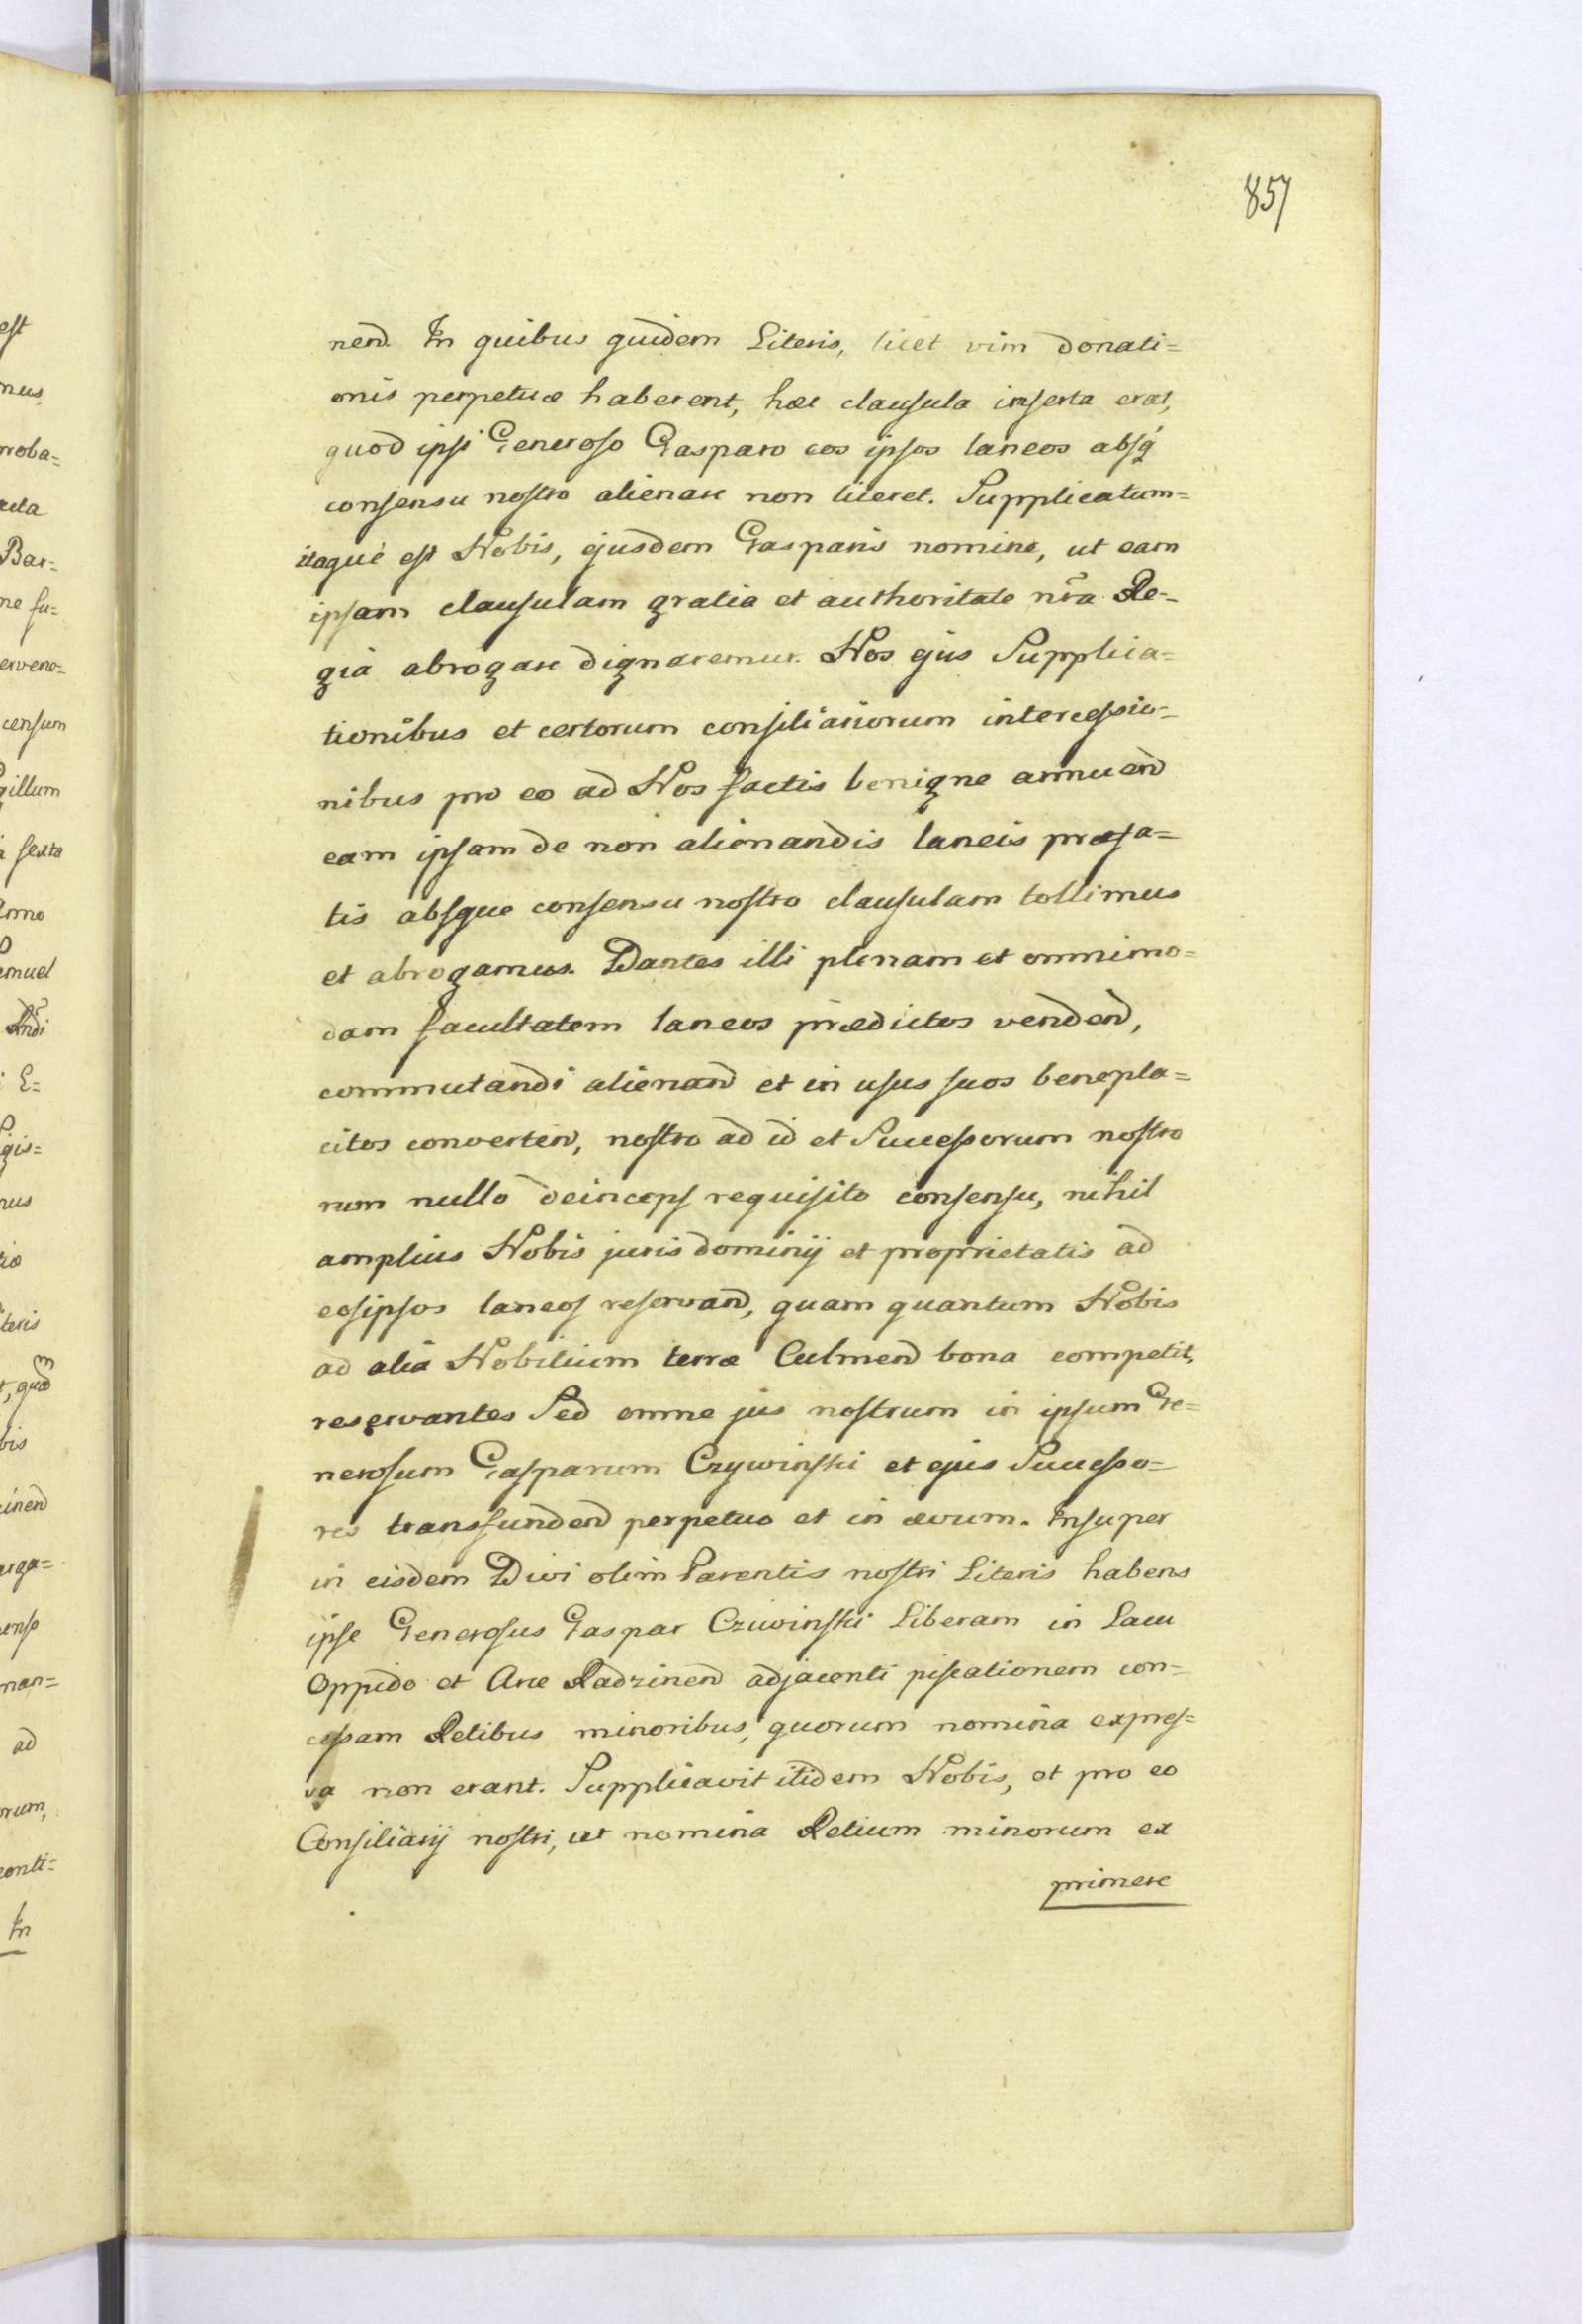 857
nend. In quibus quidem Literis, licet vim donati=
onis perpetuæ haberent, hæc clausula inserta erat,
quod ipsi Generoso Gasparo eos ipsos laneos absq
consensu nostro alienare non liceret. Supplicatum=
itaquè est Nobis, ejusdem Gasparis nomine, ut eam
ipsam clausulam gratia et authoritate nr̃a Re=
gia abrogare dignaremur. Nos ejus Supplica=
tionibus et certorum consiliariorum intercessio=
nibus pro eo ad Nos factis benigne annuend
eam ipsam de non alienandis laneis præfa=
tis absque consensu nostro clausulam tollimus
et abrogamus. Dantes illi plenam et omnimo=
dam facultatem laneos prædictos vendend,
commutandi alienand et in usus suos benepla=
citos converten, nostro ad id et Successorum nostro
rum nullo deinceps requisito consensu, nihil
amplius Nobis juris dominij et proprietatis ad
eosipsos laneos reservand, quam quantum Nobis
ad alia Nobilium terræ Culmend bona competit,
reservantes Sed omne jus nostrum in ipsum Ge=
nerosum Gasparum Czywinski et ejus Successo=
res transfundend perpetuo et in ævum. Insuper
in eisdem Divi olim Parentis nostri Literis habens
ipse Generosus Gaspar Cziwinski Liberam in Lacu
Oppido et Arce Radzinend adjacenti piscationem con=
cessam Retibus minoribus, quorum nomina expres=
sa non erant. Supplicavit itidem Nobis, et pro eo
Consiliarij nostri, ut nomina Retium minorum ex
primere
est
mus
proba=
Bar=
ne fu=
censum
gillum
sexta
Anno
emuel
E=
gis=
teris
t, quod
bis
ad
orum,
conti=
In